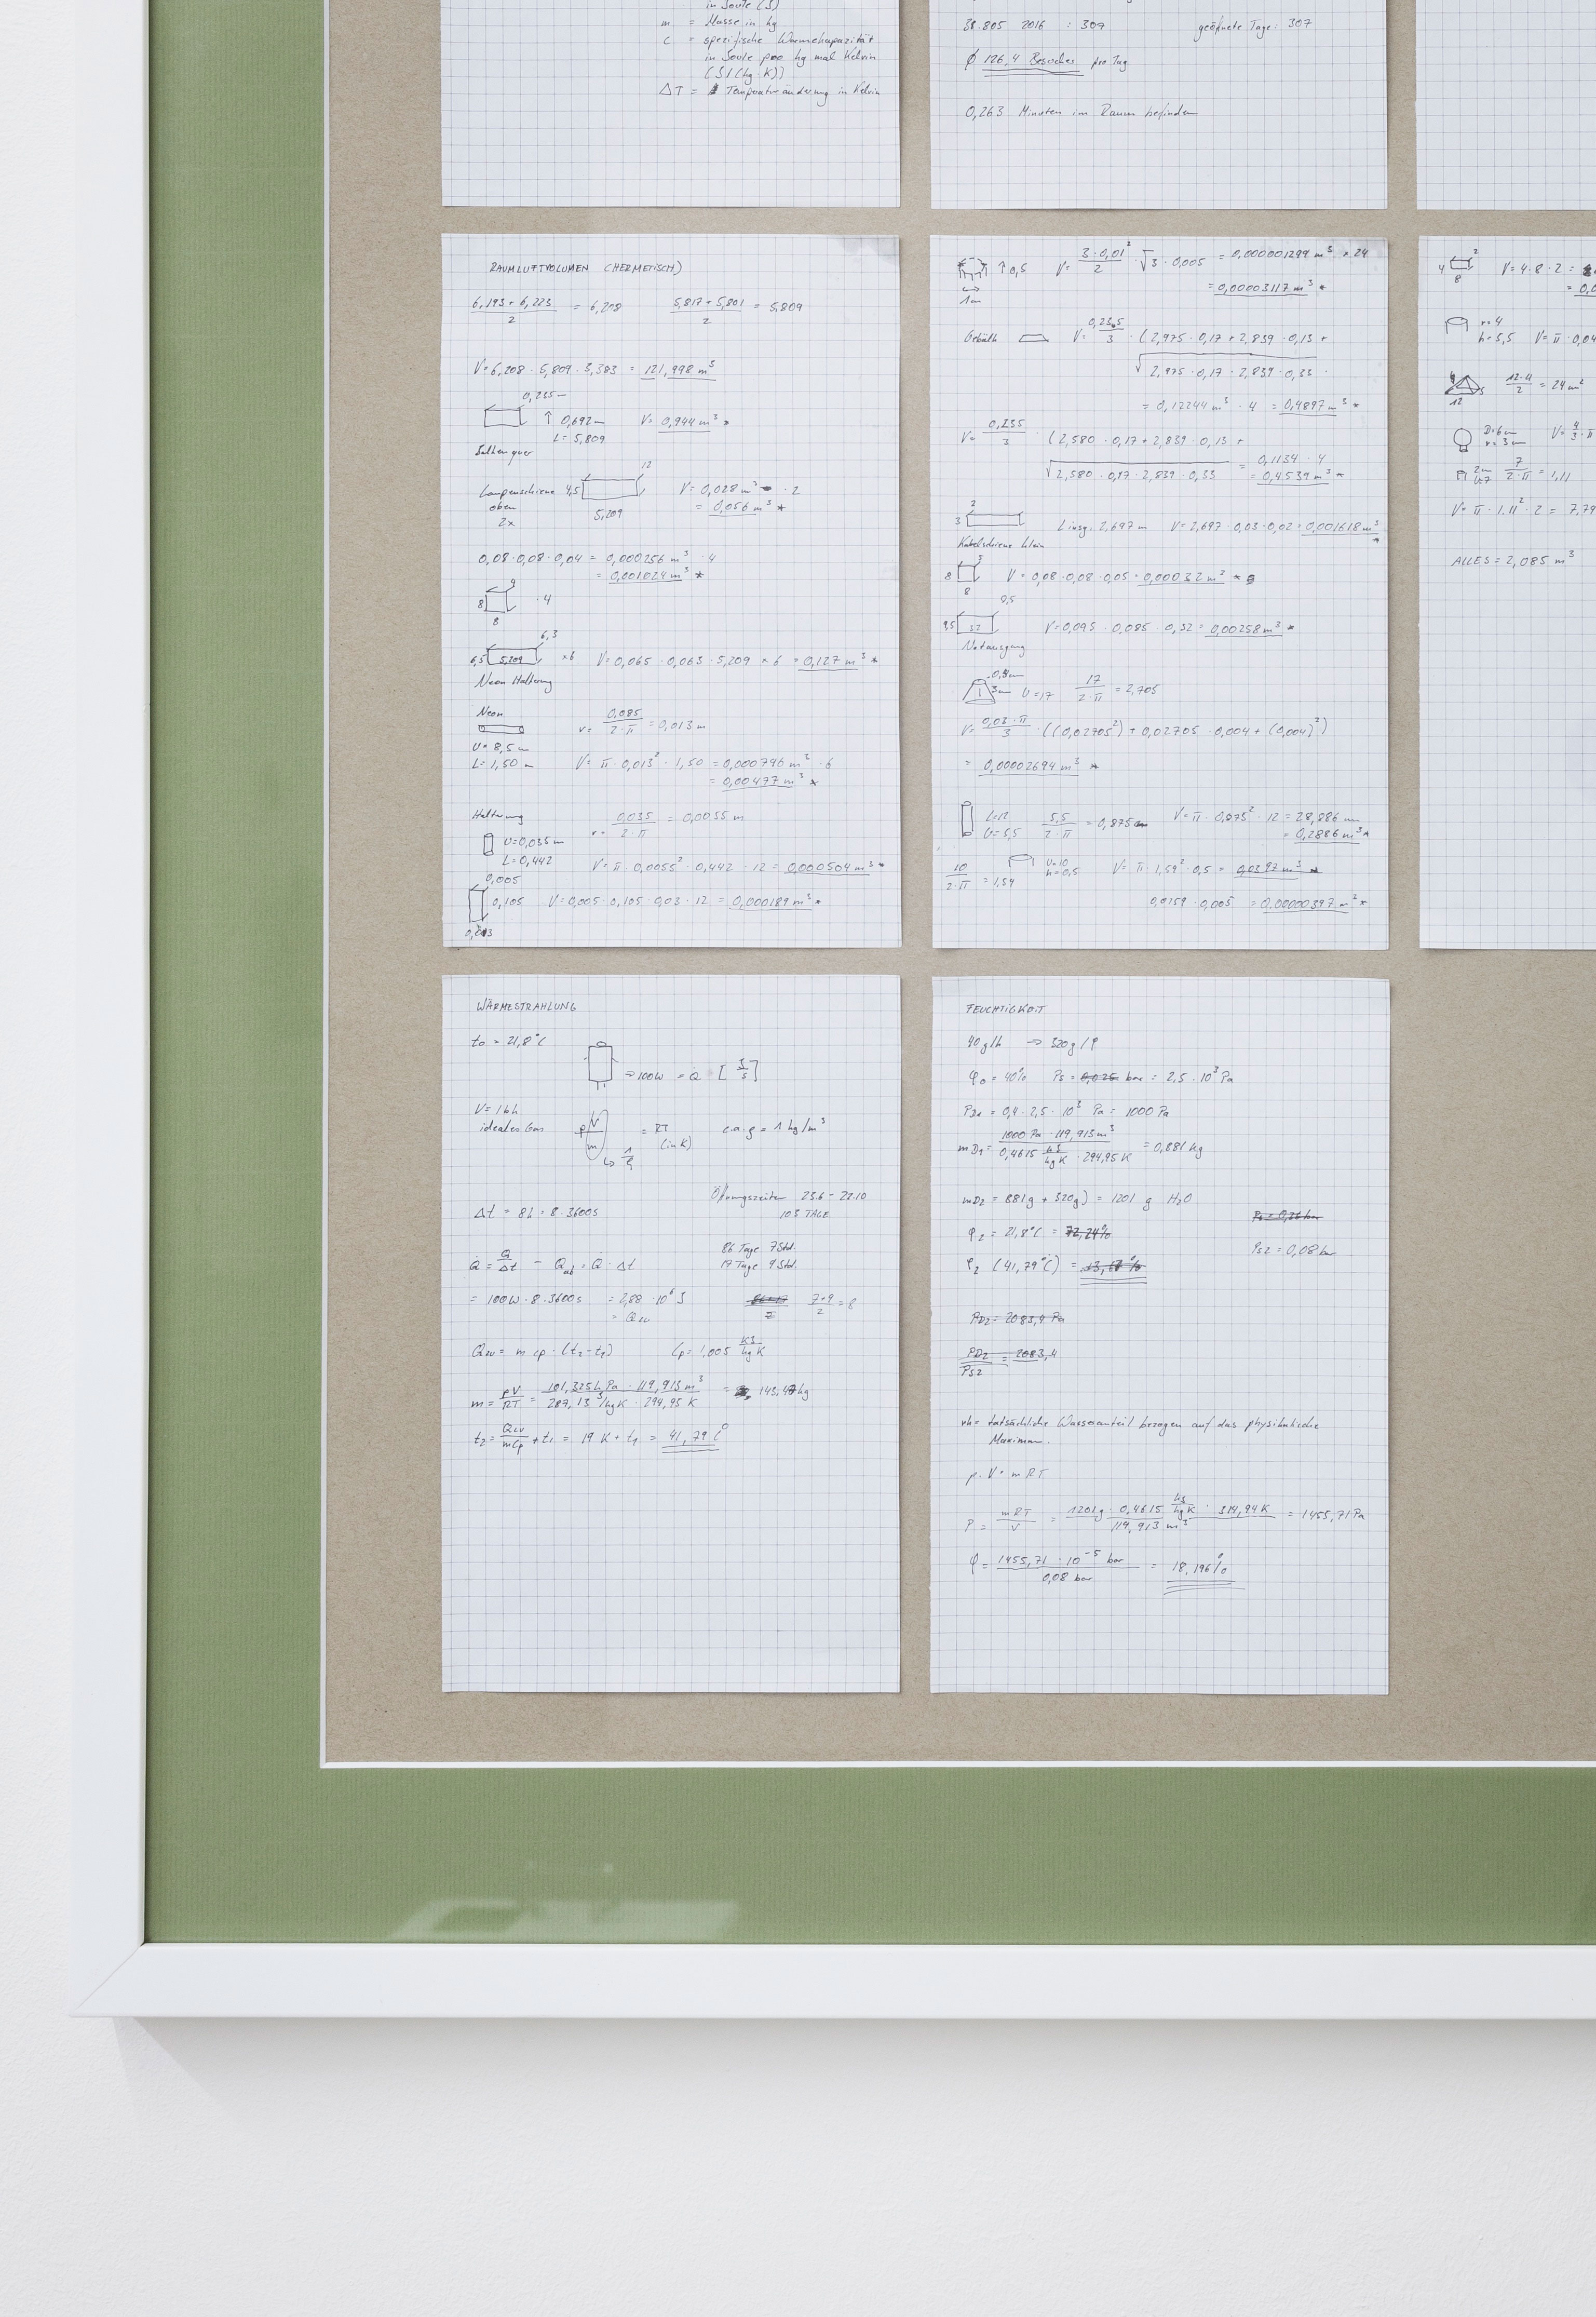 in Joule (J)
m = Masse in kg
c = spezifische Wärmekapazität
in Joule pro kg mal Kelvin
[J/(kg·K)]
ΔT = Temperaturänderung in Kelvin
38.805 2016 : 307 geöffnete Tage: 307
Ø 126,4 Besucher pro Tag
0,263 Minuten im Raum befinden
RAUMLUFTVOLUMEN (HERMETISCH)
6,193 + 6,223 / 2 = 6,208 5,817 + 5,801 / 2 = 5,809
V = 6,208 · 5,809 · 3,383 = 121,998 m³
0,235 m
↑ 0,692 m V = 0,944 m³ *
L = 5,809
quer
12
Lampenschiene 4,5 V = 0,028 m³ · 2
oben = 0,056 m³ *
2x 5,209
0,08 · 0,08 · 0,04 = 0,000256 m³ · 4
= 0,001024 m³ *
8 · 4
8
6,3
6,5 5,209 x6 V = 0,065 · 0,063 · 5,209 x 6 = 0,127 m³ *
Neon Halterung
Neon
r = 0,085 / 2·π = 0,013 m
U = 8,5 m
L = 1,50 m V = π · 0,013² · 1,50 = 0,000796 m³ · 6
= 0,00477 m³ *
Halterung r = 0,035 / 2·π = 0,0055 m
U = 0,035 m
L = 0,442 V = π · 0,0055² · 0,442 · 12 = 0,000504 m³ *
0,005
0,105 V = 0,005 · 0,105 · 0,03 · 12 = 0,000189 m³ *
↑ 0,5 V = 3 · 0,01² / 2 · √3 · 0,005 = 0,000001299 m³ · 24
1 cm = 0,00003117 m³ *
Gebälk V = 0,235 / 3 · (2,975 · 0,17 + 2,839 · 0,13 +
√2,975 · 0,17 · 2,839 · 0,33 ·
= 0,12244 m³ · 4 = 0,4897 m³ *
V = 0,235 / 3 · (2,580 · 0,17 + 2,839 · 0,13 +
√2,580 · 0,17 · 2,839 · 0,33 = 0,1134 · 4
= 0,4539 m³ *
2
3 L insg. 2,697 m V = 2,697 · 0,03 · 0,02 = 0,001618 m³ *
Kabelschiene klein
8 V = 0,08 · 0,08 · 0,05 = 0,00032 m³ *
8
9,5 32 V = 0,095 · 0,085 · 0,32 = 0,00258 m³ *
Notausgang
3 cm U = 17 17 / 2·π = 2,705
V = 0,03 · π / 3 · ((0,02705²) + 0,02705 · 0,004 + (0,004)²)
= 0,00002694 m³ *
L = 12
U = 5,5 5,5 / 2·π = 0,875 V = π · 0,875² · 12 = 28,886 m
= 0,2886 m³ *
10 / 2·π = 1,59 U = 10 h = 0,5 V = π · 1,59² · 0,5 = 0,0397 m³
0,0159 · 0,005 = 0,00000397 m³ *
2
4 V = 4 · 8 · 2 =
8
r = 4
h = 5,5 V = π · 0,04
12 · 4 / 2 = 24 m²
12
D = 6 cm
r = 3 cm V = 4/3 · π
2 cm
U = 7 7 / 2·π = 1,11
V = π · 1,11² · 2 = 7,74
ALLES = 2,085 m³
WÄRMESTRAHLUNG
t₀ = 21,8°C
⇒ 100W = Q̇ [J/s]
V = 1 kh
ideales Gas p V / m = RT (in K) c.a. ρ = 1 kg/m³
↳ 1/ρ
Öffnungszeiten 23.6 – 22.10
Δt = 8h = 8 · 3600s 103 TAGE
86 Tage 7 Std.
Q̇ = Q / Δt – Qab = Q̇ · Δt 17 Tage 9 Std.
= 100W · 8 · 3600s = 2,88 · 10⁶ J 7+9 / 2 = 8
= Qzu
Qzu = m cp · (t₂ – t₁) Cp = 1,005 KJ / kgK
m = pV / RT = 101,325 hPa · 119,913 m³ / 287,1 J/kgK · 294,95 K = 143,47 kg
t₂ = Qzu / mCp + t₁ = 19 K + t₁ = 41,79 C°
FEUCHTIGKEIT
40 g/h → 320 g/P
φ₀ = 40% Ps = 0,025 bar = 2,5 · 10³ Pa
PD1 = 0,4 · 2,5 · 10³ Pa = 1000 Pa
mD1 = 1000 Pa · 119,913 m³ / 0,4615 kJ/kgK · 294,95 K = 0,881 kg
mD2 = 881g + 320g) = 1201 g H₂O
Ps = 0,26 bar
φ₂ = 21,8°C = 72,24%
Ps2 = 0,08 bar
φ₂ (41,79°C) =
PD2 = 2083,4 Pa
PD2 / Ps2 = 2083,4
rh = tatsächliche Wasseranteil bezogen auf das physikalische
Maximum.
p · V = m RT
P = mRT / V = 1201g · 0,4615 kJ/kgK · 314,94 K / 119,913 m³ = 1455,71 Pa
φ = 1455,71 · 10⁻⁵ bar / 0,08 bar = 18,196%